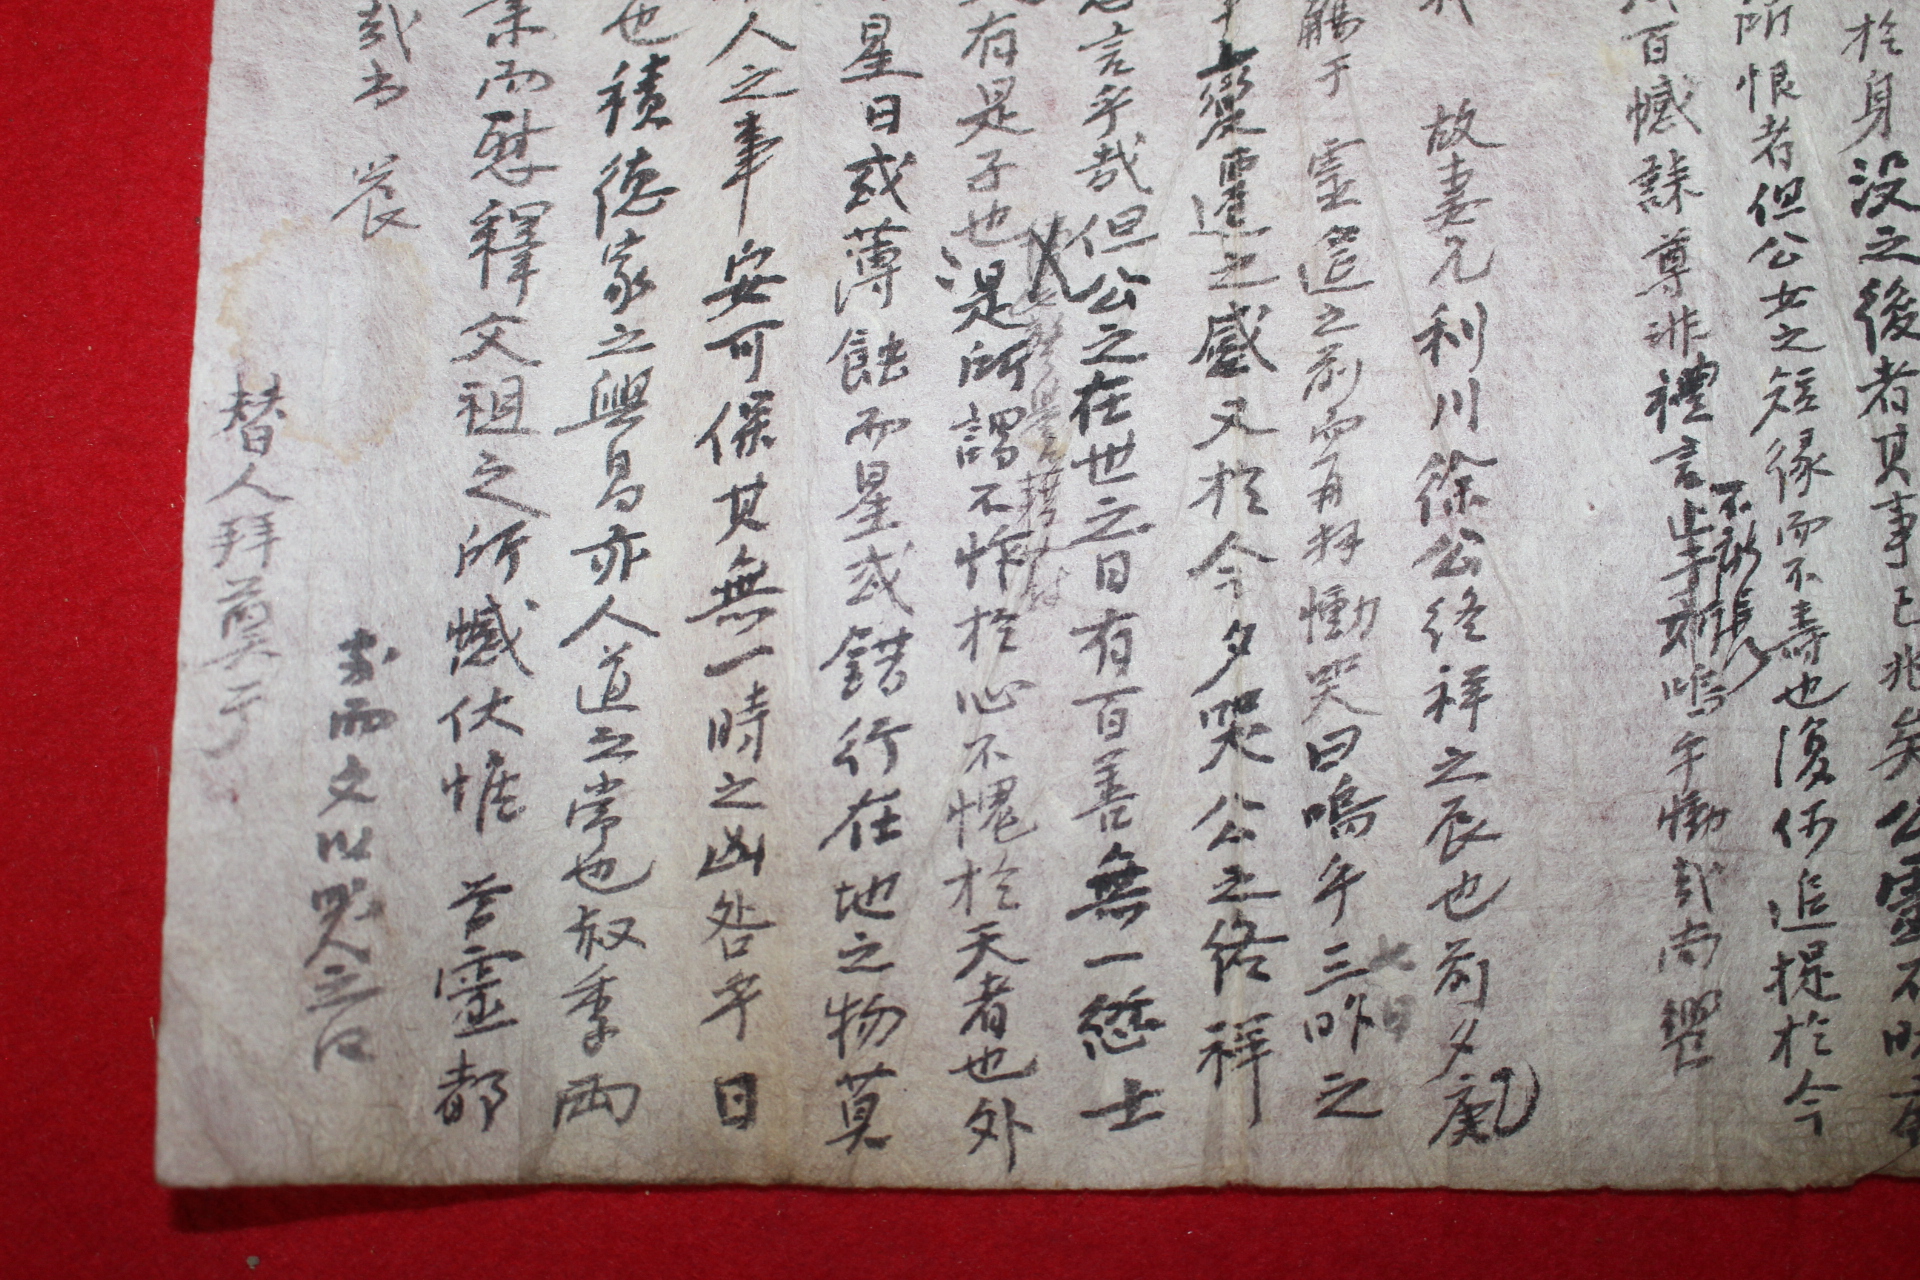 於身没之後者其事已兆矣公靈不昧
所恨者但公女之短緣而不壽也復何追提於今
百憾誄尊非禮言止於嗚乎慟哉尚饗
不敢
故妻兄利川徐公終祥之辰也前夕庚
七日
觴于靈筵之前而再拜慟哭曰嗚乎三昨之
變遷之感又於今夕哭公之終祥
言乎哉但公之在世之日有百善無一愆士
有是子也是所謂不怍於心不愧於天者也外
星日或薄蝕而星或錯行在地之物莫
人之事安可保其無一時之凶咎乎日
也積德家之興昌亦人道之常也叔季両
而慰釋文祖之所憾伏惟 尊靈都
哉
替人拜奠于
而文以哭之曰